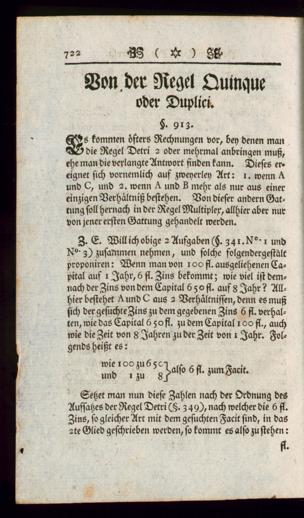 722 ( ✡ )
Von der Regel Quinque
oder Duplici.
§. 913.
Es kommen öfters Rechnungen vor, bey denen man
die Regel Detri 2 oder mehrmal anbringen muß,
ehe man die verlangte Antwort finden kann. Dieses er-
eignet sich vornemlich auf zweyerley Art: 1. wenn A
und C, und 2. wenn A und B mehr als nur aus einer
einzigen Verhältniß bestehen. Von dieser andern Gat-
tung soll hernach in der Regel Multiplex, allhier aber nur
von jener ersten Gattung gehandelt werden.
Z. E. Will ich obige 2 Aufgaben (§. 341. No. 1 und
No. 3) zusammen nehmen, und solche folgendergestalt
proponiren: Wenn man von 100 fl. ausgeliehenen Ca-
pital auf 1 Jahr, 6 fl. Zins bekommt; wie viel ist dem-
nach der Zins von dem Capital 650 fl. auf 8 Jahr? All-
hier bestehet A und C aus 2 Verhältnissen, denn es muß
sich der gesuchte Zins zu dem gegebenen Zins 6 fl. verhal-
ten, wie das Capital 650 fl. zu dem Capital 100 fl., auch
wie die Zeit von 8 Jahren zu der Zeit von 1 Jahr. Fol-
gends heißt es:
wie 100 zu 650 } also 6 fl. zum Facit.
und 1 zu 8
Setzet man nun diese Zahlen nach der Ordnung des
Aufsatzes der Regel Detri (§. 349), nach welcher die 6 fl.
Zins, so gleicher Art mit dem gesuchten Facit sind, in das
2te Glied geschrieben werden, so kommt es also zu stehen:
fl.